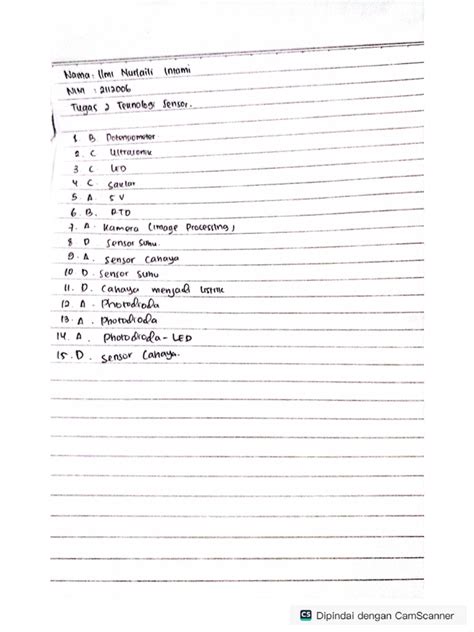 Nama : Ilmi Nurlaili Intami
NIM : 2112006
Tugas 2 Teknologi Sensor.
1. B Potensiometer
2. C Ultrasonic
3. C LED
4. C. Saklar
5. A. 5 V
6. B. RTD
7. A. Kamera (Image Processing)
8 D Sensor Suhu.
9. A. Sensor Cahaya
10 D. Sensor Suhu
11. D. Cahaya menjadi listrik
12. A. Photodioda
13. A. Photodioda
14. A. Photodioda - LED
15. D. Sensor Cahaya.
CS Dipindai dengan CamScanner